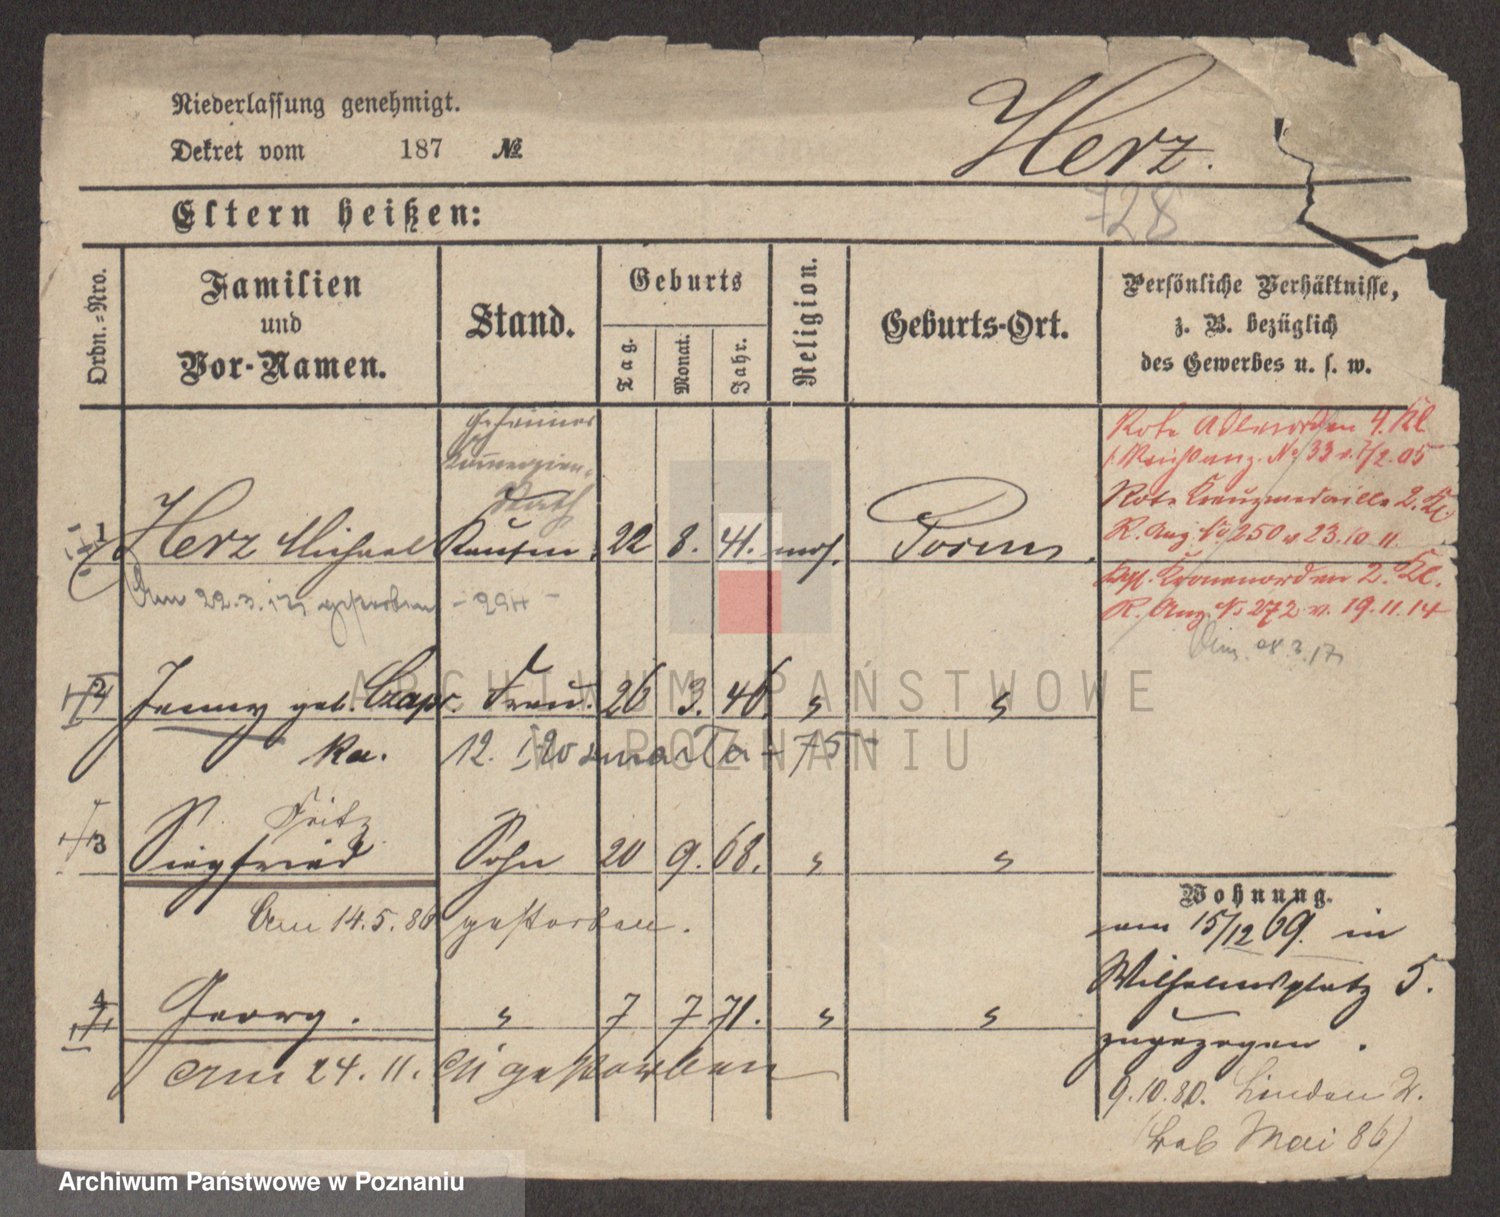 Niederlassung genehmigt.
Dekret vom 187 №
Herz.
728
Eltern heißen:
Ordn.-Nro.
Familien und Vor-Namen.
Stand.
Geburts
Tag.
Monat.
Jahr.
Religion.
Geburts-Ort.
Persönliche Verhältnisse,
z. B. bezüglich
des Gewerbes u. s. w.
Geheimer
Kommerzien-
Rath
Rote Adlerorden 4. Kl
Reichsanz. No 33 v. 7/2.05
Rote Kreuzmedaille 2. Kl
R. Anz. No 250 v 23.10.11.
1 Herz Michael Kaufm. 22 8. 41. mos. Posen.
Kgl. Kronenorden 2. Kl.
R. Anz. No 272 v. 19.11.14
Am 22.3.17 gestorben - 294 -
28.3.17
2 Jenny geb. Frau. 26 3. 46. " "
ka. 12. - 75 -
Fritz
3 Siegfried Sohn 20 9. 68. " "
Am 14.5.86 gestorben.
Wohnung.
am 15/12 69. in
Wilhelmsplatz 5.
zugezogen.
4 Georg. " 7 7 71. " "
Am 24. 11. gestorben
9.10.80. Linden 2.
Mai 86)
ARCHIWUM PAŃSTWOWE
W POZNANIU
Archiwum Państwowe w Poznaniu